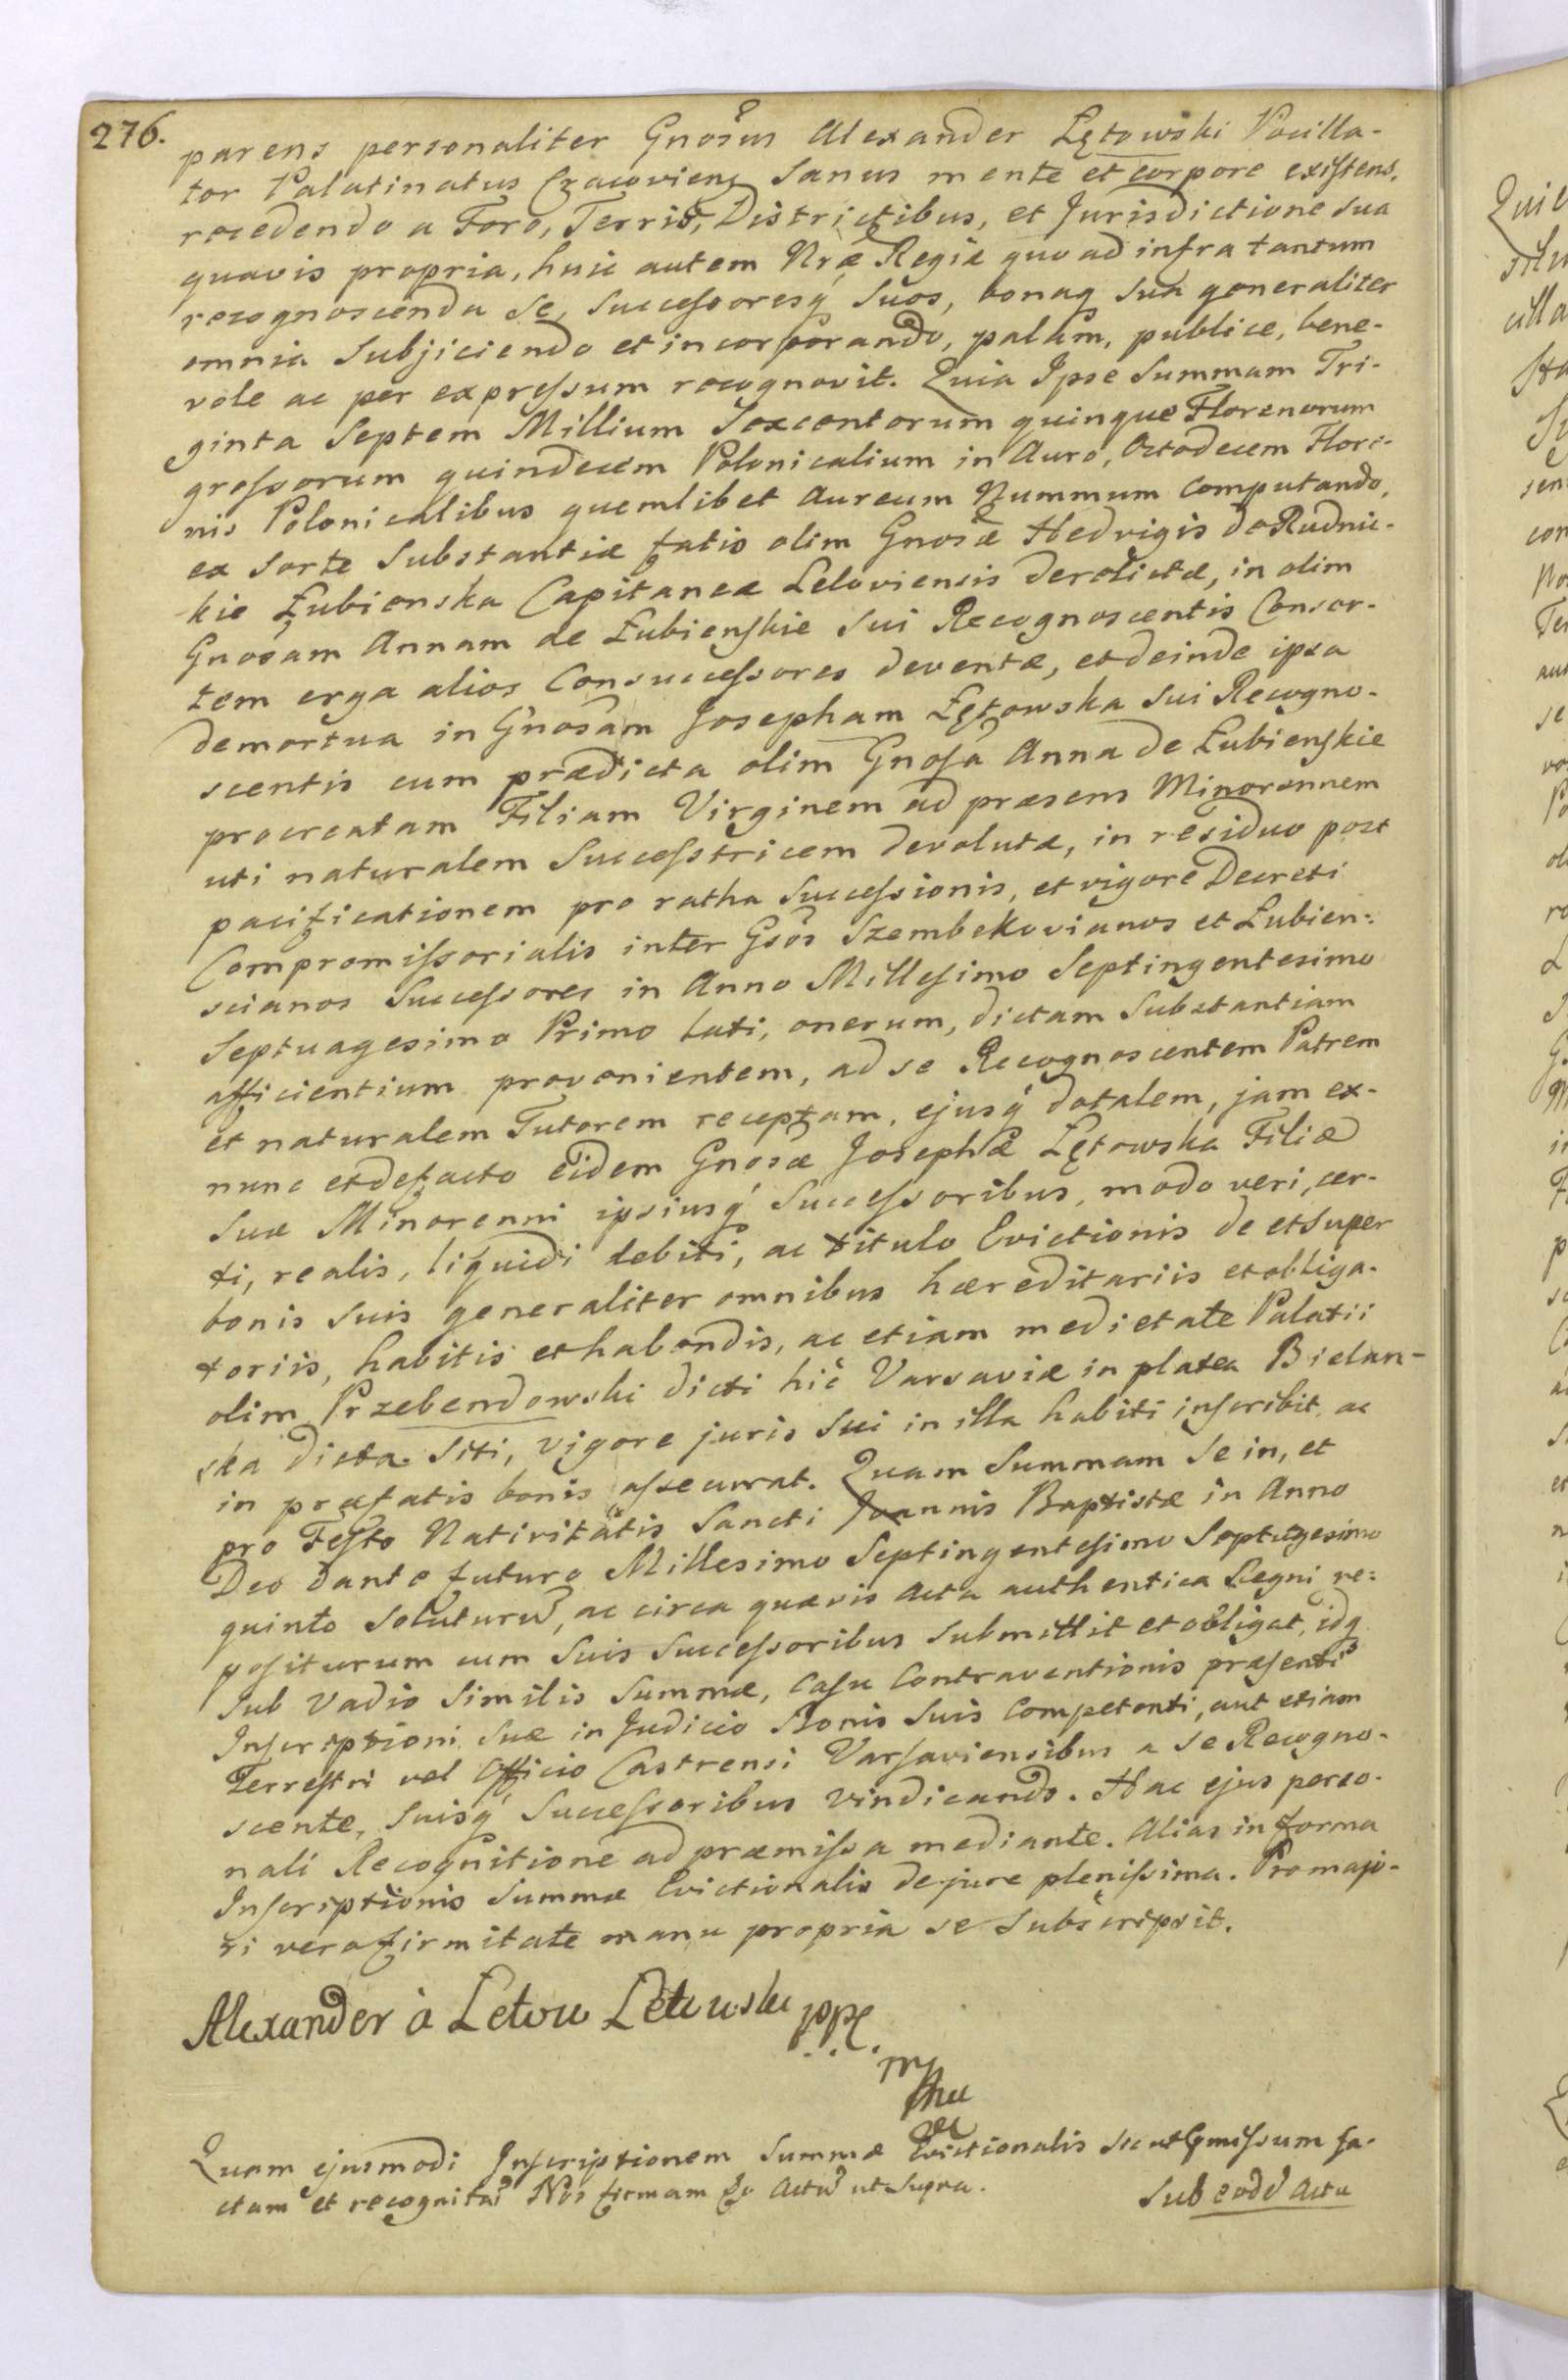 276.
parens personaliter Gnosus Alexander Łętowski Pocilla-
tor Palatinatus Cracoviens Sanus mente et corpore existens,
recedendo a Foro, Terris, Districtibus, et Jurisdictione sua
quavis propria, huic autem Nræ Regiæ quo ad infra tantum
recognoscenda se, Successoresq́ Suos, bonaq sua generaliter
omnia Subjiciendo et incorporando, palam, publice, bene-
vole ac per expressum recognovit. Quia Ipse Summam Tri-
ginta Septem Millium Sexcentorum quinque Florenorum
grossorum quindecem Polonicalium in Auro, Octodecem Flore-
nis Polonicalibus quemlibet Aureum Nummum Computando,
ex Sorte Substantiæ fatis olim Gnosæ Hedvigis de Rudnic-
kie Łubienska Capitaneæ Leloviensis derelictæ, in olim
Gnosam Annam de Łubienskie Sui Recognoscentis Consor-
tem erga alios Consuccessores deventæ, et deinde ipsa
demortua in Gnosam Josepham Łętowska Sui Recogno-
scentis cum prædicta olim Gnosa Anna de Łubienskie
procreatam Filiam Virginem ad præsens Minorennem
uti naturalem Successtricem devolutæ, in residuo post
pacificationem pro ratha Successionis, et vigore Decreti
Compromissorialis inter Gsos Szembekovianos et Lubien=
scianos Successores in Anno Millesimo Septingentesimo
Septuagesimo Primo lati, onerum, dictam Substantiam
afficientium provenientem, ad se Recognoscentem Patrem
et naturalem Tutorem receptam, ejusq́ dotalem, jam ex-
nunc et de facto eidem Gnosæ Josephæ Łętowska Filiæ
Suæ Minorenni ipsiusq́ Successoribus, modo veri, cer-
ti, realis, liquidi debiti, ac titulo Evictionis de et super
bonis suis generaliter omnibus hæreditariis et obliga-
toriis, habitis et habendis, ac etiam medietate Palatii
olim Przebendowski dicti hic Varsaviæ in platea Bielan-
ska dicta Siti, vigore juris Sui in illa habiti inscribit, ac
in præfatis bonis assecurat. Quam Summam Se in, et
pro Festo Nativitatis Sancti Joannis Baptistæ in Anno
Deo dante futuro Millesimo Septingentesimo Septuagesimo
quinto Soluturū, ac circa quævis Acta authentica Regni re=
positurum cum Suis Successoribus Submittit et obligat, idq
Sub Vadio Similis Summæ, Casu Contraventionis præsenti
Inscriptioni Suæ in Judicio Bonis Suis Competenti, aut etiam
Terrestri vel Officio Castrensi Varsaviensibus a se Recogno-
scente, Suisq́ Successoribus Vindicando. Hac ejus perso-
nali Recognitione ad præmissa mediante. Alias in forma
Inscriptionis Summæ Evictionalis de jure plenissima. Pro majo-
ri vero firmitate manu propria se Subscripsit.
Alexander à Letow Letowski
Quam ejusmodi Inscriptionem Summæ Evictionalis sic ut præmissum fa-
ctam et recognitā Nos firmam ut Supra.
Sub eodē Actu